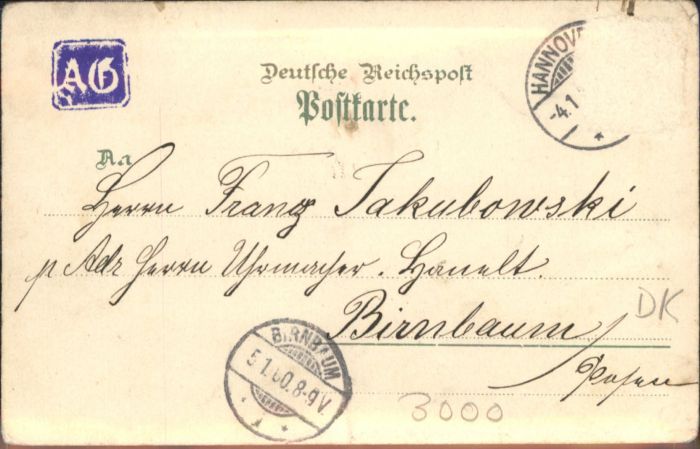 AG
Deutsche Reichspost
Postkarte.
HANNOVE
-4.1
An
Herrn Franz Jakubowski
p Adr Herrn Uhrmacher. Hanelt.
Birnbaum
DK
Posen
BIRNBAUM
5.1.00.8-9V.
3000